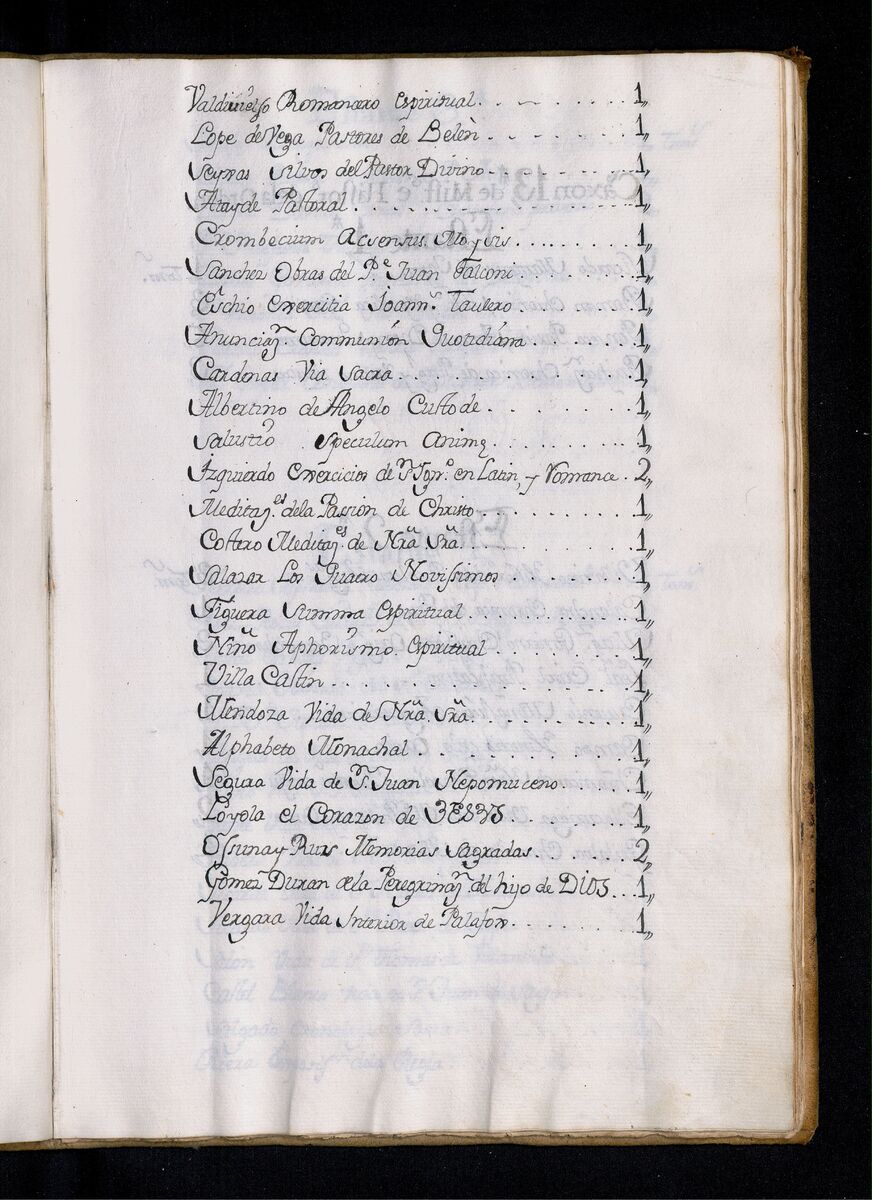 Valdivielso Romancero Espiritual 1,,
Lope de Vega Pastores de Belèn 1,,
Seyxas Silvos del Pastor Divino 1,,
Atayde Pastoral 1,,
Crombecium Acsensus Moysis 1,,
Sanchez Obras del P.e Juan Falconi 1,,
Eschio Exercitia Joann.s Taulero 1,,
Anunciaz.n Communión Quotidiana 1,,
Cardenas Via Sacra 1,,
Albertino de Angelo Custode 1,,
Salustio Speculum Animę 1,,
Izquierdo Exercicios de S.n Ign.o en Latin, y Romance 2,,
Meditaz.es de la Passion de Christo 1,,
Costero Meditaz.es de Nrã Srã. 1,,
Salazar Los Quatro Novissimos 1,,
Figuera Summa Espiritual 1,,
Niño Aphorismo Espiritual 1,,
Villa Castin 1,,
Mendoza Vida de Nrã. Srã. 1,,
Alphabeto Monachal 1,,
Segura Vida de S.n Juan Nepomuceno 1,,
Loyola el Corazon de JESVS 1,,
Ossuna y Rus Memorias Sagradas 2,,
Gomez Duran de la Peregrinaz.n del hijo de DIOS 1,,
Vergara Vida Interior de Palafox 1,,